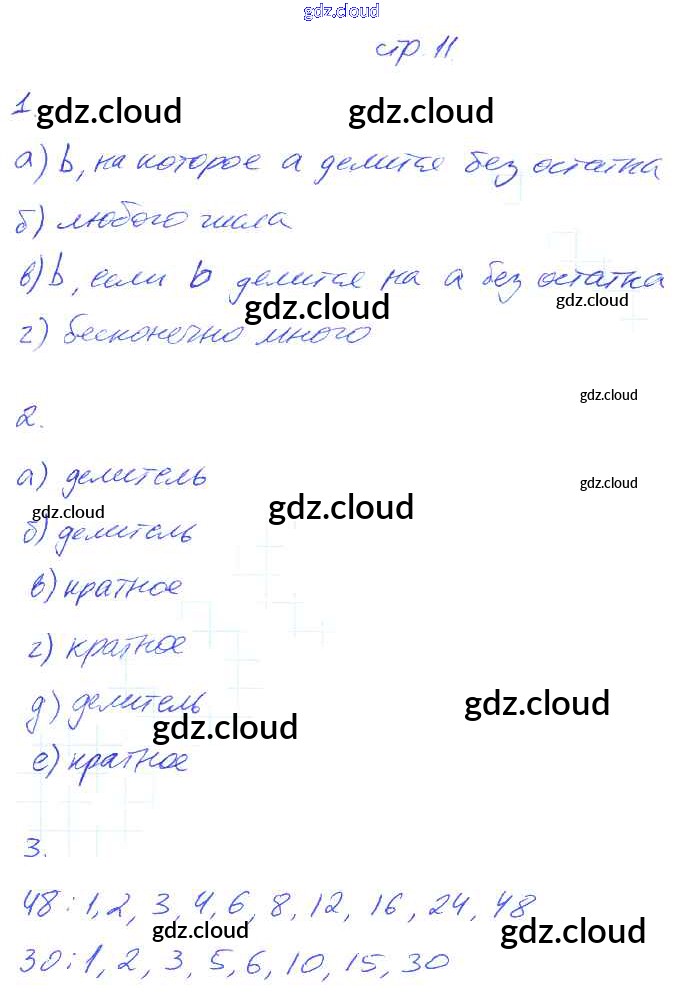 gdz.cloud
стр. 11.
1.
gdz.cloud gdz.cloud
а) b, на которое а делится без остатка
б) любого числа
в) b, если b делится на а без остатка
gdz.cloud gdz.cloud
г) бесконечно много
gdz.cloud
2.
а) делитель
gdz.cloud
gdz.cloud gdz.cloud
б) делитель
в) кратное
г) кратное
д) делитель
gdz.cloud gdz.cloud
е) кратное
3.
48: 1, 2, 3, 4, 6, 8, 12, 16, 24, 48
gdz.cloud gdz.cloud
30: 1, 2, 3, 5, 6, 10, 15, 30